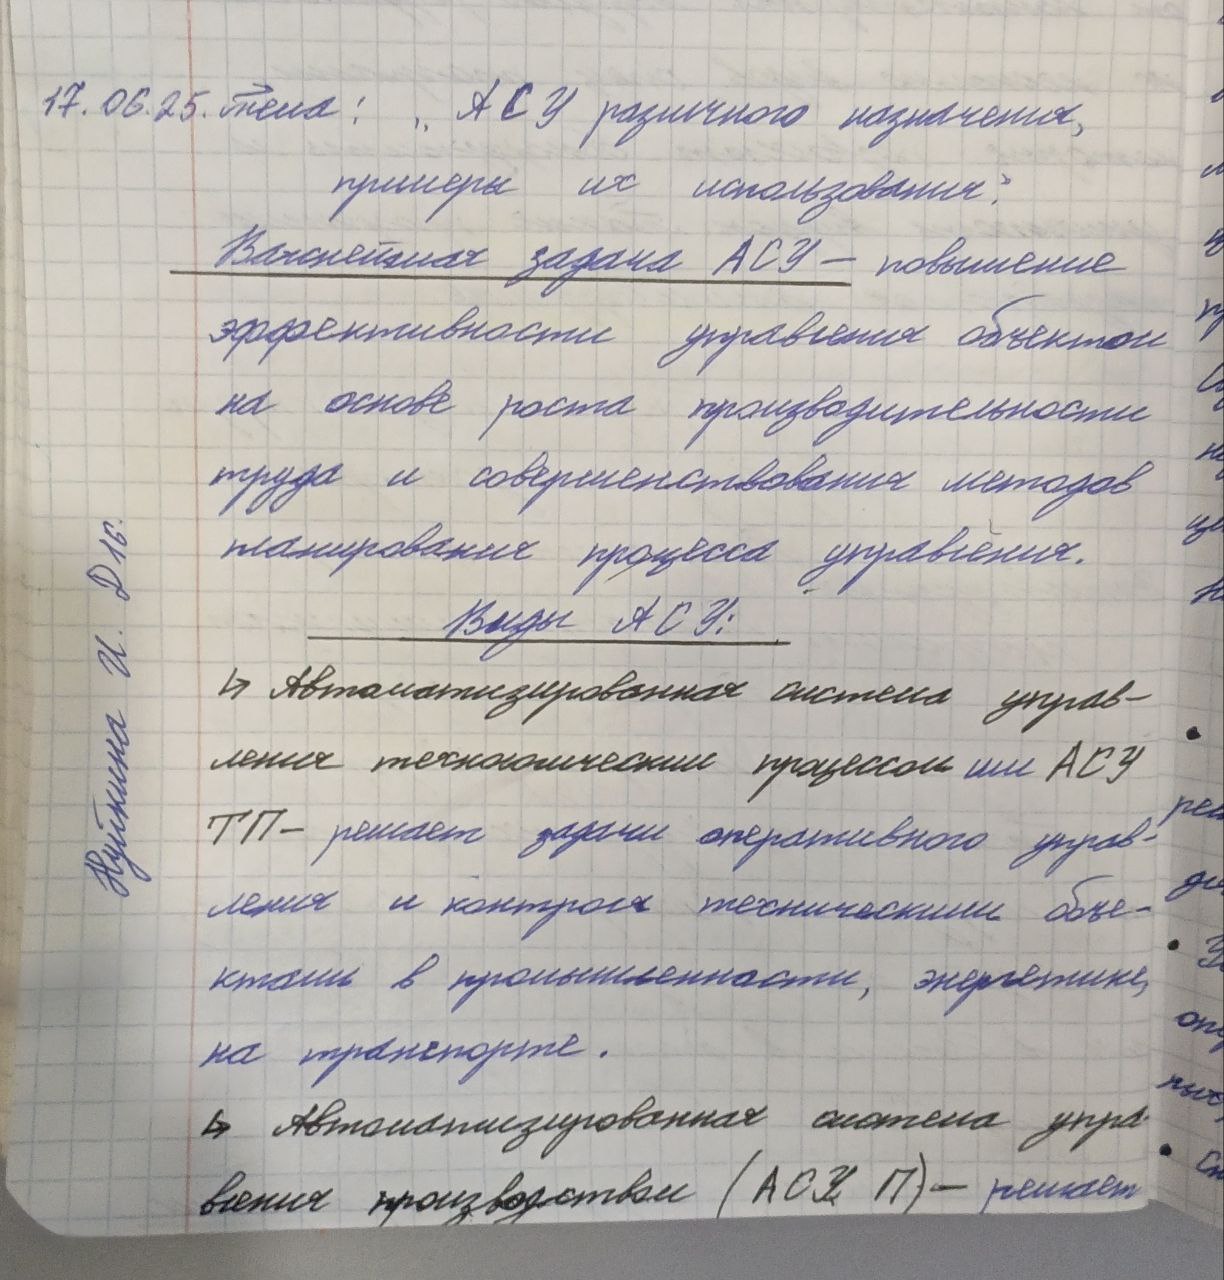 17.06.25. Тема: „АСУ различного назначения,
примеры их использования."
Важнейшая задача АСУ – повышение
эффективности управления объектом
на основе роста производительности
труда и совершенствования методов
планирования процесса управления.
Виды АСУ:
↳ Автоматизированная система управ-
ления технологическим процессом или АСУ
ТП – решает задачи оперативного управ-
ления и контроля техническими объе-
ктами в промышленности, энергетике,
на транспорте.
↳ Автоматизированная система упра
вления производством (АСУ П) – решает
Нуйкина И. Д 16.